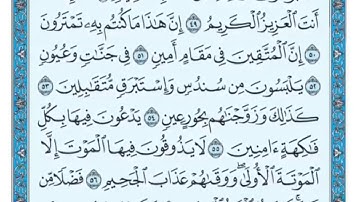 أَنتَ ٱلْعَزِيزُ ٱلْكَرِيمُ ٤٩ إِنَّ هَٰذَا مَا كُنتُم بِهِۦ تَمْتَرُونَ
٥٠ إِنَّ ٱلْمُتَّقِينَ فِى مَقَامٍ أَمِينٍ ٥١ فِى جَنَّٰتٍ وَعُيُونٍ
٥٢ يَلْبَسُونَ مِن سُندُسٍ وَإِسْتَبْرَقٍ مُّتَقَٰبِلِينَ ٥٣
كَذَٰلِكَ وَزَوَّجْنَٰهُم بِحُورٍ عِينٍ ٥٤ يَدْعُونَ فِيهَا بِكُلِّ
فَٰكِهَةٍ ءَامِنِينَ ٥٥ لَا يَذُوقُونَ فِيهَا ٱلْمَوْتَ إِلَّا
ٱلْمَوْتَةَ ٱلْأُولَىٰ ۖ وَوَقَىٰهُمْ عَذَابَ ٱلْجَحِيمِ ٥٦ فَضْلًا مِّن